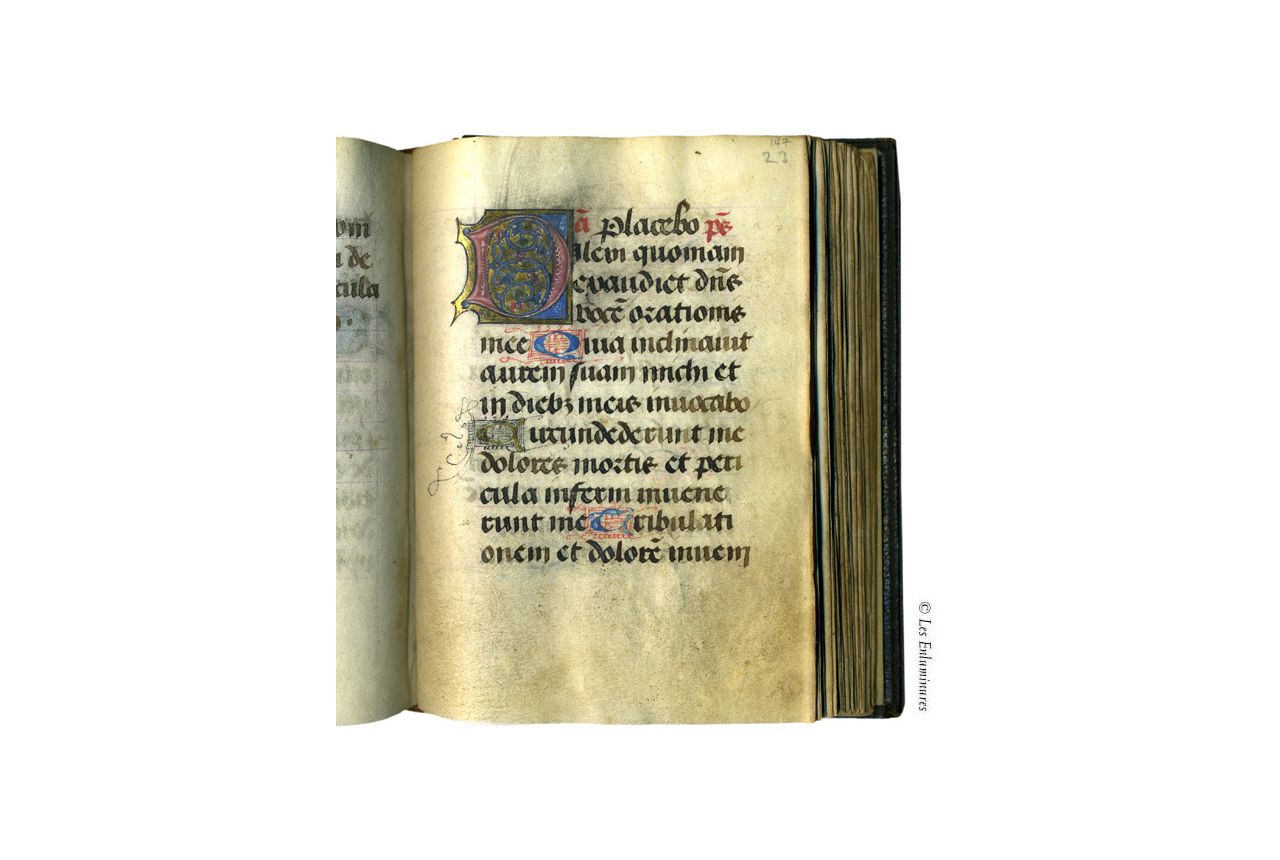 oni
i de
cula
147
23
ā placebo ps̄
Dilexi quoniam
exaudiet dn̄s
vocē orationis
mee Quia inclinauit
aurem suam michi et
in dieb⁊ meis inuocabo
Circundederunt me
dolores mortis et peri
cula inferni inuene
runt me Tribulati
onem et dolorē inueni
© Les Enluminures